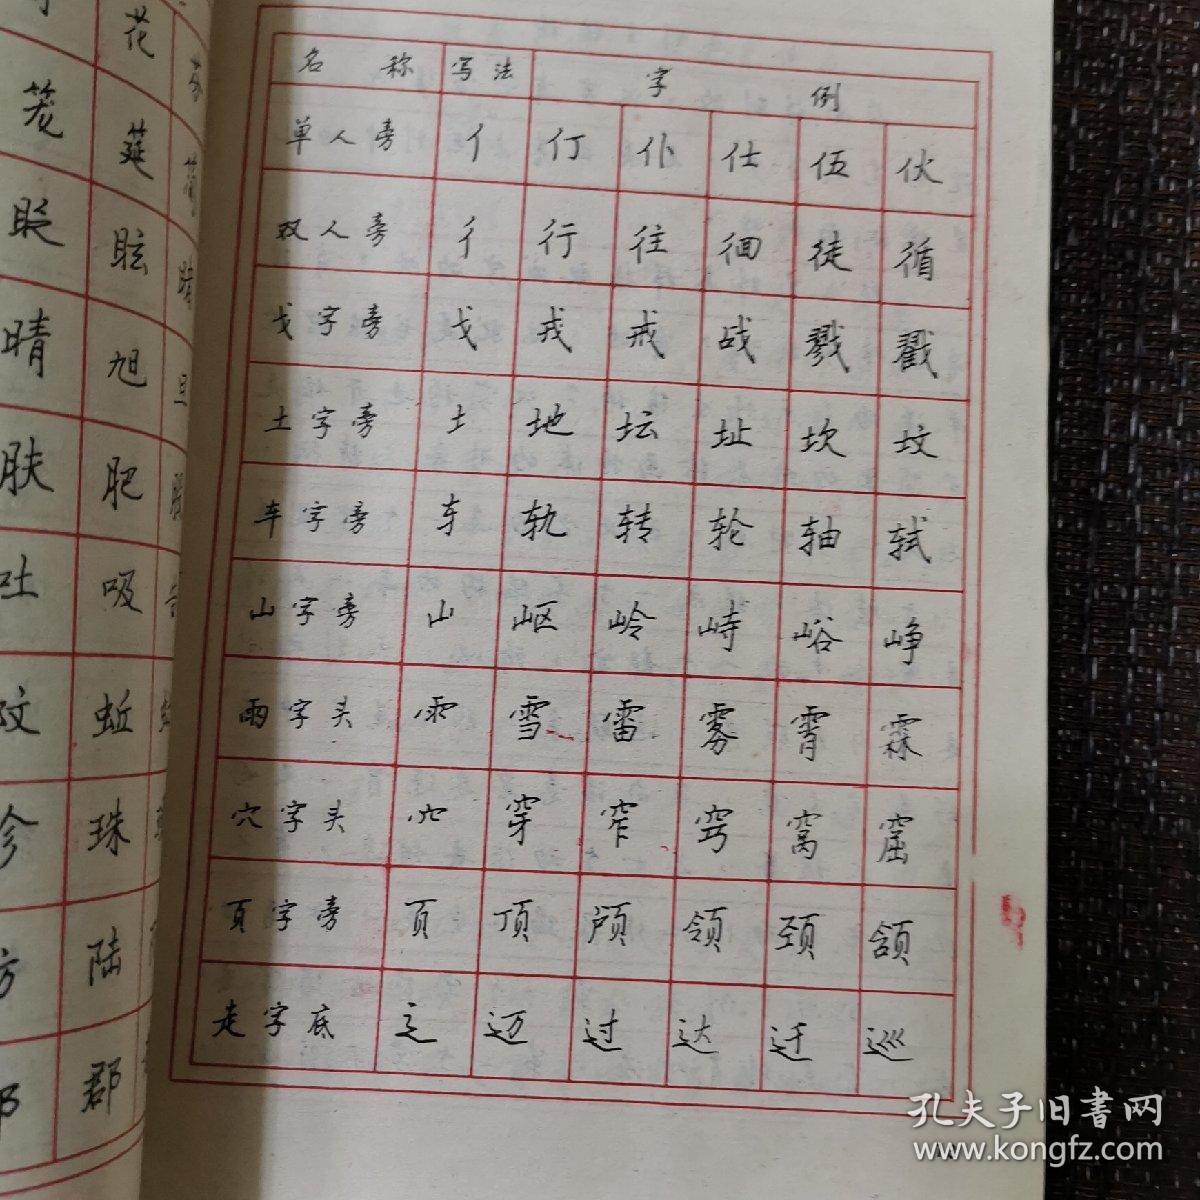 名称 写法 字例
单人旁 亻 仃 仆 仕 伍 伙
双人旁 彳 行 往 徊 徒 循
戈字旁 戈 戎 戒 战 戮 戳
土字旁 土 地 坛 址 坎 坟
车字旁 车 轨 转 轮 轴 轼
山字旁 山 岖 岭 峙 峪 峥
雨字头 ⻗ 雪 雷 雾 霄 霖
穴字头 穴 穿 窄 窍 窝 窟
页字旁 页 顶 颅 领 颈 颌
走字底 辶 迈 过 达 迁 巡
花
笼 莛
眩
晴 旭 旦
肤 肥
吐 吸
蚯
珠
陆
郡
孔夫子旧书网
www.kongfz.com